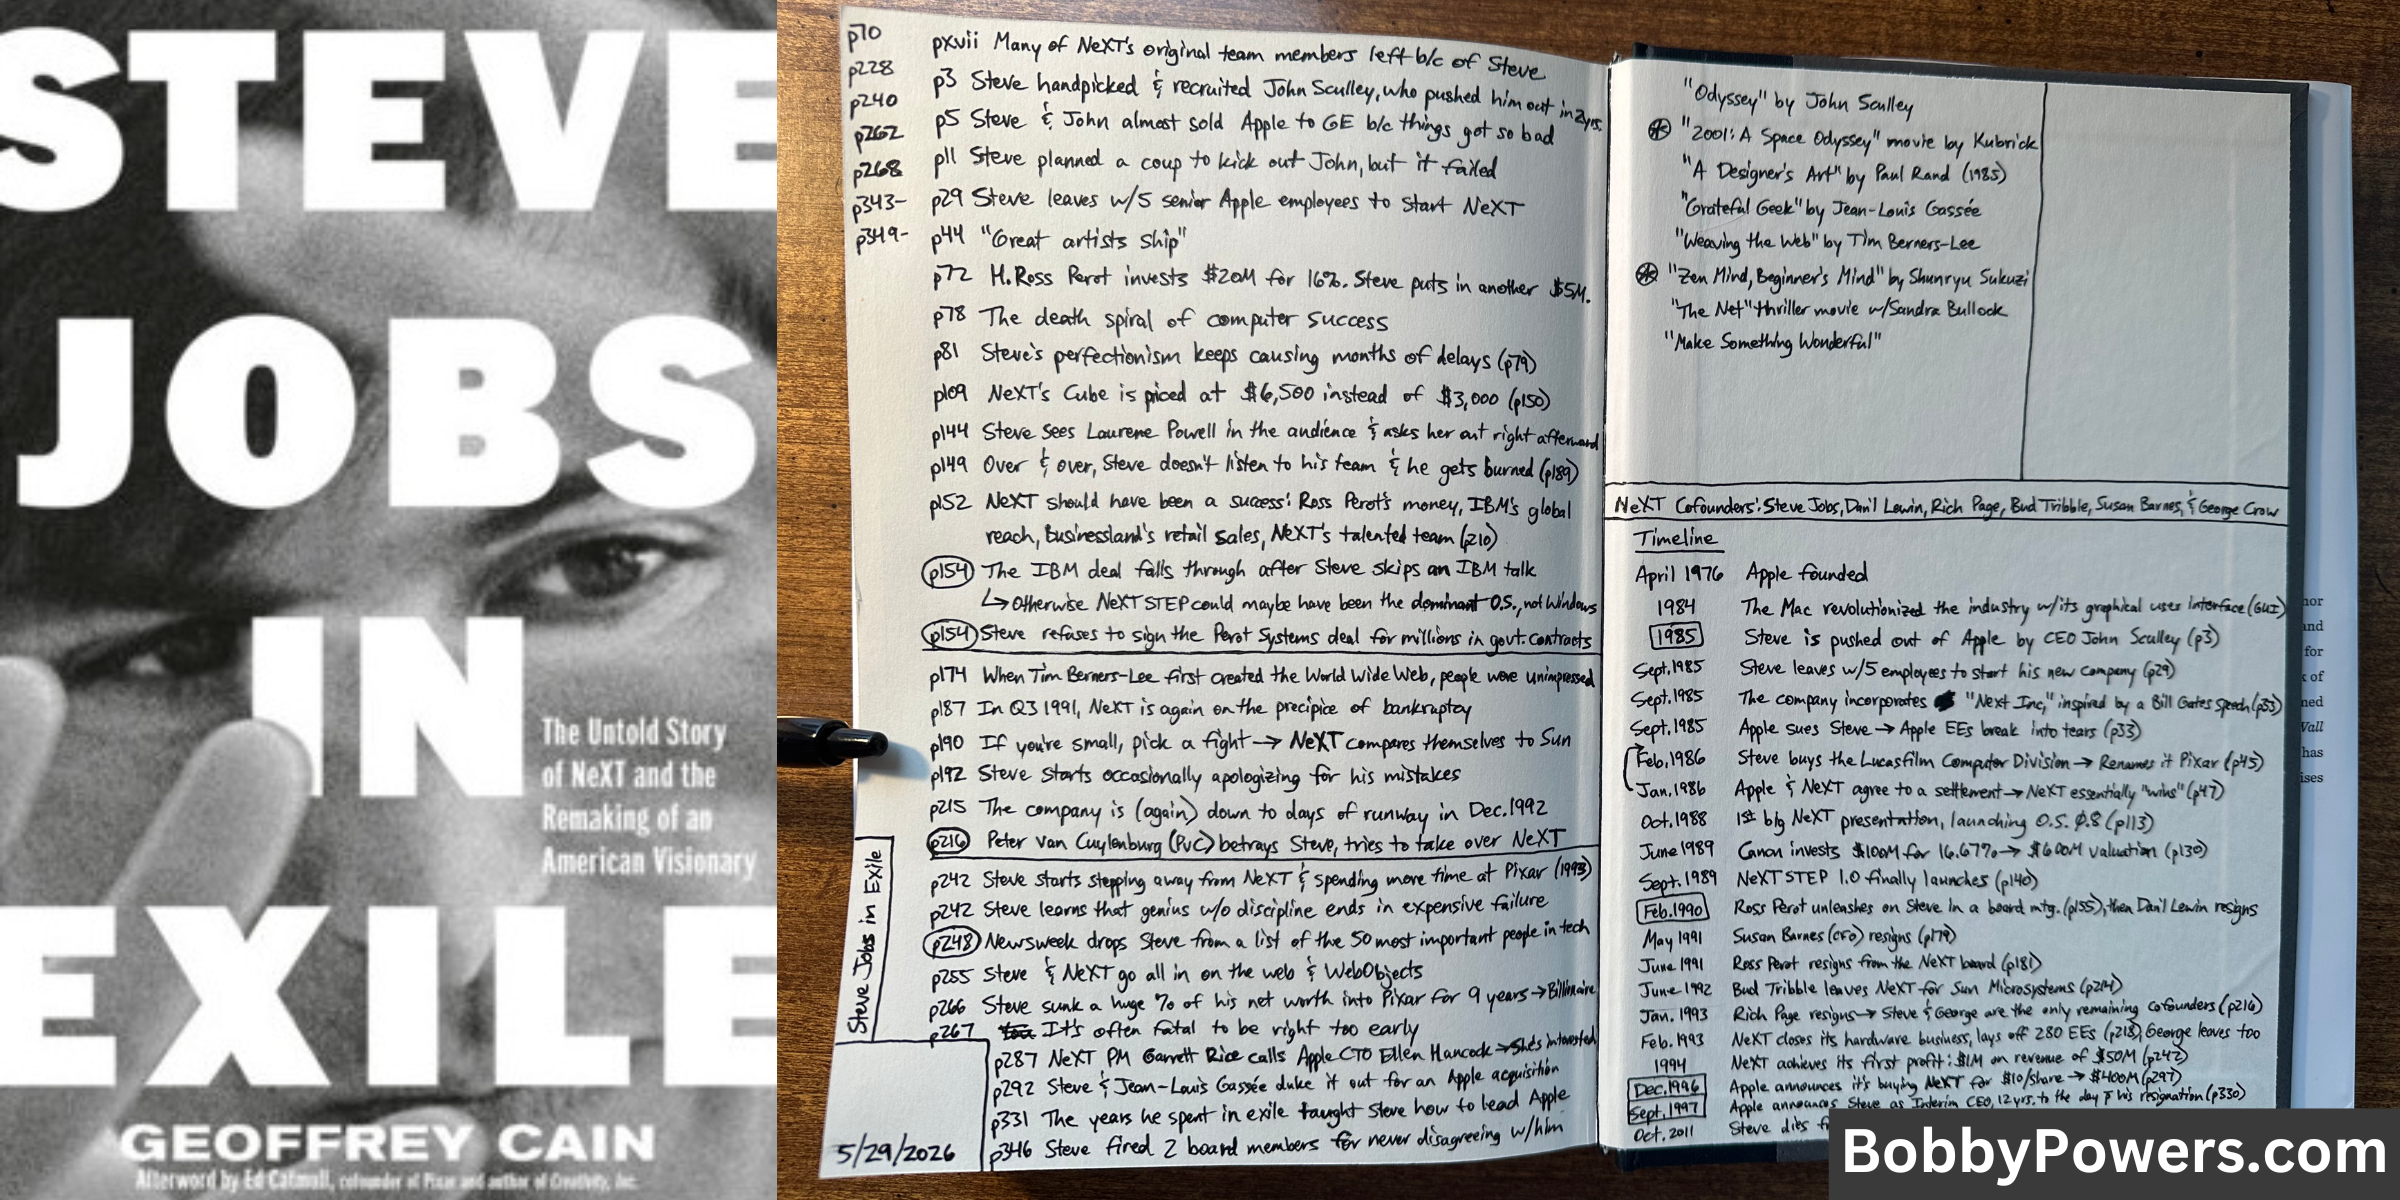 STEVE
JOBS
IN
EXILE
The Untold Story
of NeXT and the
Remaking of an
American Visionary
GEOFFREY CAIN
Afterword by Ed Catmull, cofounder of Pixar and author of Creativity, Inc.
p70
p228
p240
p262
p268
p343-
p349-
pxvii Many of NeXT's original team members left b/c of Steve
p3 Steve handpicked & recruited John Sculley, who pushed him out in 2yrs.
p5 Steve & John almost sold Apple to GE b/c things got so bad
p11 Steve planned a coup to kick out John, but it failed
p29 Steve leaves w/5 senior Apple employees to start NeXT
p44 "Great artists ship"
p72 H. Ross Perot invests $20M for 16%. Steve puts in another $5M.
p78 The death spiral of computer success
p81 Steve's perfectionism keeps causing months of delays (p79)
p109 NeXT's Cube is priced at $6,500 instead of $3,000 (p150)
p144 Steve sees Laurene Powell in the audience & asks her out right afterward
p149 Over & over, Steve doesn't listen to his team & he gets burned (p189)
p152 NeXT should have been a success: Ross Perot's money, IBM's global
reach, Businessland's retail sales, NeXT's talented team (p210)
p154 The IBM deal falls through after Steve skips an IBM talk
↳ Otherwise NeXTSTEP could maybe have been the dominant O.S., not Windows
p154 Steve refuses to sign the Perot Systems deal for millions in govt. contracts
p174 When Tim Berners-Lee first created the World Wide Web, people were unimpressed
p187 In Q3 1991, NeXT is again on the precipice of bankruptcy
p190 If you're small, pick a fight → NeXT compares themselves to Sun
p192 Steve starts occasionally apologizing for his mistakes
p215 The company is (again) down to days of runway in Dec. 1992
p216 Peter van Cuylenburg (PvC) betrays Steve, tries to take over NeXT
p242 Steve starts stepping away from NeXT & spending more time at Pixar (1993)
p242 Steve learns that genius w/o discipline ends in expensive failure
p248 Newsweek drops Steve from a list of the 50 most important people in tech
p255 Steve & NeXT go all in on the web & WebObjects
p266 Steve sunk a huge % of his net worth into Pixar for 9 years → Billionaire
p267 It's often fatal to be right too early
p287 NeXT PM Garrett Rice calls Apple CTO Ellen Hancock → She's interested
p292 Steve & Jean-Louis Gassée duke it out for an Apple acquisition
p331 The years he spent in exile taught Steve how to lead Apple
p346 Steve fired 2 board members for never disagreeing w/him
Steve Jobs in Exile
5/29/2026
"Odyssey" by John Sculley
"2001: A Space Odyssey" movie by Kubrick
"A Designer's Art" by Paul Rand (1985)
"Grateful Geek" by Jean-Louis Gassée
"Weaving the Web" by Tim Berners-Lee
"Zen Mind, Beginner's Mind" by Shunryu Sukuzi
"The Net" thriller movie w/Sandra Bullock
"Make Something Wonderful"
NeXT Cofounders: Steve Jobs, Dan'l Lewin, Rich Page, Bud Tribble, Susan Barnes, & George Crow
Timeline
April 1976 Apple founded
1984 The Mac revolutionized the industry w/its graphical user interface (GUI)
1985 Steve is pushed out of Apple by CEO John Sculley (p3)
Sept. 1985 Steve leaves w/5 employees to start his new company (p29)
Sept. 1985 The company incorporates "Next Inc," inspired by a Bill Gates speech (p33)
Sept. 1985 Apple sues Steve → Apple EEs break into tears (p33)
Feb. 1986 Steve buys the Lucasfilm Computer Division → Renames it Pixar (p45)
Jan. 1986 Apple & NeXT agree to a settlement → NeXT essentially "wins" (p47)
Oct. 1988 1st big NeXT presentation, launching O.S. 0.8 (p113)
June 1989 Canon invests $100M for 16.67% → $600M valuation (p130)
Sept. 1989 NeXTSTEP 1.0 finally launches (p140)
Feb. 1990 Ross Perot unleashes on Steve in a board mtg. (p155), then Dan'l Lewin resigns
May 1991 Susan Barnes (CFO) resigns (p179)
June 1991 Ross Perot resigns from the NeXT board (p181)
June 1992 Bud Tribble leaves NeXT for Sun Microsystems (p214)
Jan. 1993 Rich Page resigns → Steve & George are the only remaining cofounders (p216)
Feb. 1993 NeXT closes its hardware business, lays off 280 EEs (p218), George leaves too
1994 NeXT achieves its first profit: $1M on revenue of $50M (p242)
Dec. 1996 Apple announces it's buying NeXT for $10/share → $400M (p297)
Sept. 1997 Apple announces Steve as Interim CEO, 12 yrs. to the day of his resignation (p330)
Oct. 2011 Steve dies
nor
and
for
of
ned
Vall
has
ises
BobbyPowers.com